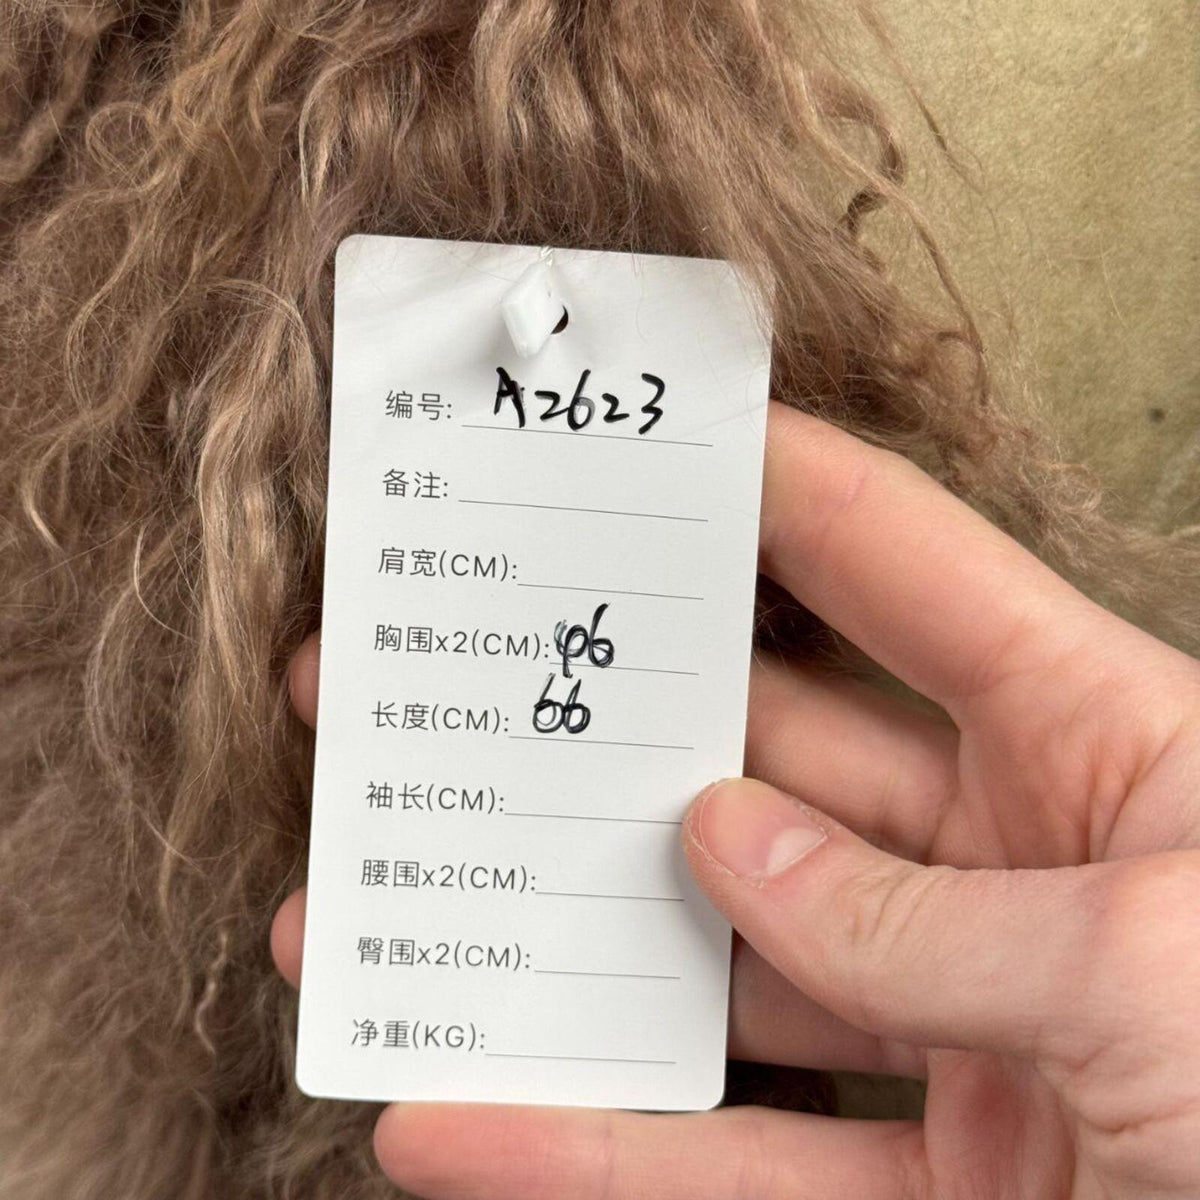 编号: A2623
备注:
肩宽(CM):
胸围x2(CM):
长度(CM): 66
袖长(CM):
腰围x2(CM):
臀围x2(CM):
净重(KG):